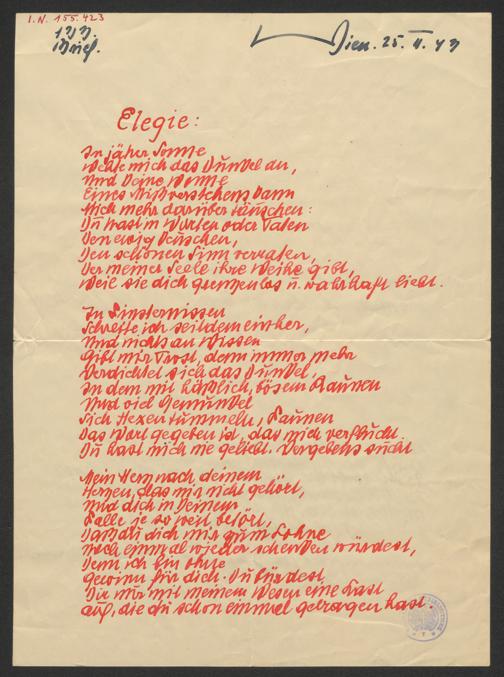 I.N. 155.423
123.
Brief.
Wien. 25. II. 43
Elegie:
In jäher Sonne
Wehte mich das Dunkel an,
Und Deine Wonne
Eines Mißverstehens kann
Mich mehr darüber täuschen:
Du hast in Worten oder Taten
Den ewig Keuschen,
Den schönen Sinn verraten,
Der meiner Seele ihre Weihe gibt,
Weil sie dich grenzenlos u. wahrhaft liebt.
In Finsternissen
Schreite ich seitdem einher,
Und nichts an Wissen
Gibt mir Trost, denn immer mehr
Verdichtet sich das Dunkel,
In dem mit häßlich, bösem Raunen
Und viel Gemunkel
Sich Hexen tummeln, Faunen
Das Wort gegeben ist, das mich verflucht.
Du hast mich nie geliebt. Vergebens sucht
Mein Herz nach deinem
Herzen, das mir nicht gehört,
Und dich in Deinem
Falle je so weit betört,
Daß du dich mir zum Lohne
Noch einmal wieder schenken würdest,
Denn ich bin ohne
Gewinn für dich. Du bürdest
Dir nur mit meinem Wesen eine Last
auf, die du schon einmal getragen hast.